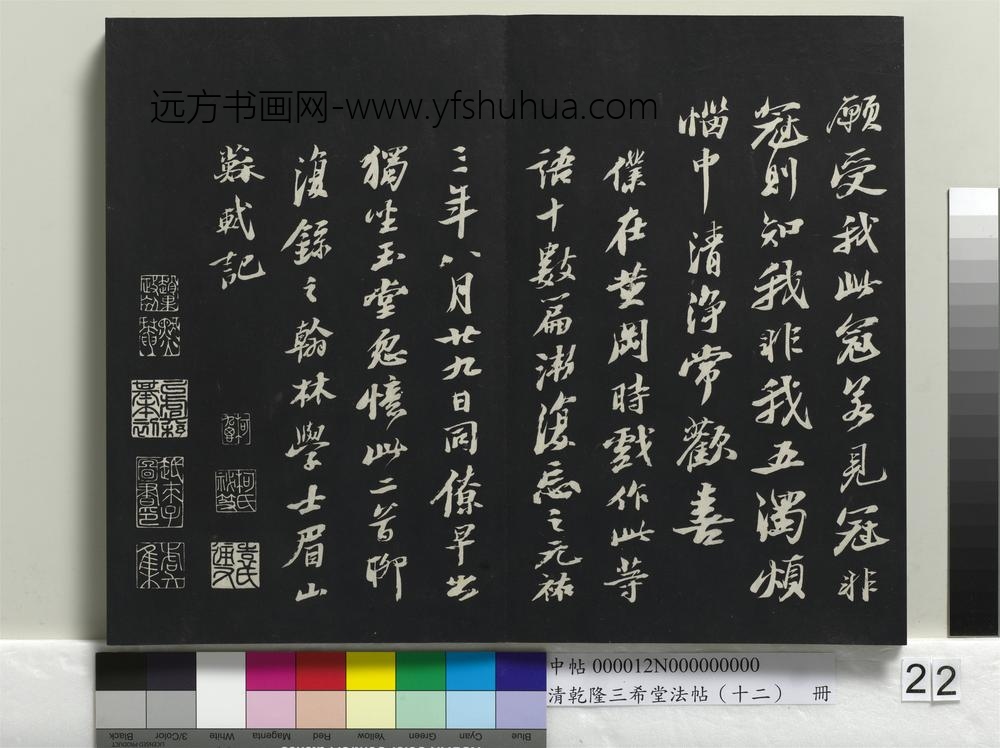 远方书画网-www.yfshuhua.com
願受我此冠若見冠非
冠則知我非我五濁煩
惱中清淨常歡喜
僕在黄岡時戲作此等
語十數篇漸復忘之元祐
三年八月廿九日同僚早出
獨坐玉堂忽憶此二首聊
復録之翰林學士眉山
蘇軾記
柯氏
袁氏
趙末子
圖書印
中帖 000012N000000000
清乾隆三希堂法帖（十二） 冊
22
Blue
Cyan
Green
Yellow
Red
Magenta
White
3/Color
Black